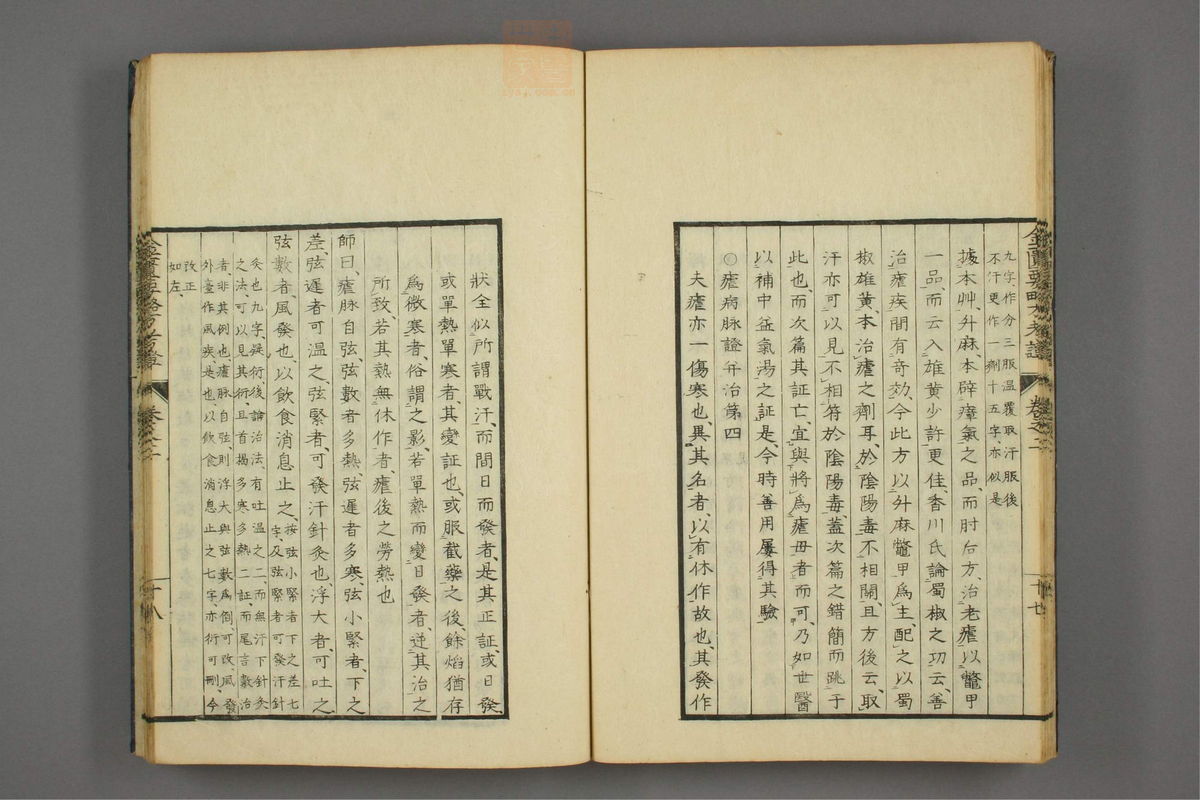 九字、作分三服温覆取汗服後
不汗更作一剤十五字、亦似是
據本艸升麻、本辟瘴氣之品、而肘后方、治老瘧以鼈甲
一品、而云入雄黄少許更佳、香川氏論蜀椒之功云、善
治瘧疾間有奇効、今此方以升麻鼈甲爲主、配之以蜀
椒雄黄、本治瘧之劑耳、於陰陽毒不相關、且方後云、取
汗亦可以見不相符於陰陽毒、蓋次篇之錯簡而跳于
此也、而次篇其証亡、宜與將爲瘧母者而可、乃如世醫
以補中益氣湯之証是、今時善用屢得其驗
○瘧病脉證并治第四
夫瘧亦一傷寒也、異其名者、以有休作故也、其發作
狀全似所謂戰汗、而間日而發者、是其正証、或日發、
或單熱單寒者、其變証也、或服截藥之後、餘焰猶存
爲微寒者、俗謂之影、若單熱而變日發者、逆其治之
所致、若其熱無休作者、瘧後之勞熱也
師曰、瘧脉自弦、弦數者多熱、弦遲者多寒、弦小緊者、下之
差、弦遲者可温之、弦緊者、可發汗針灸也、浮大者、可吐之
弦數者、風發也、以飲食消息止之、
按弦小緊者下之差七
字、及弦緊者可發汗針
灸也九字、疑衍、後論治法、有吐温之二、而無汗下針灸
之法、可以見其衍、且首揭多寒多熱二証、而尾言數治
者、非其例也、瘧脉自弦、則浮大與弦數爲倒、可改、風發
外臺作風疾、是也、以飲食消息止之七字、亦衍可刪、今
改正
如左、
金匱要略方考證
卷之二
十八